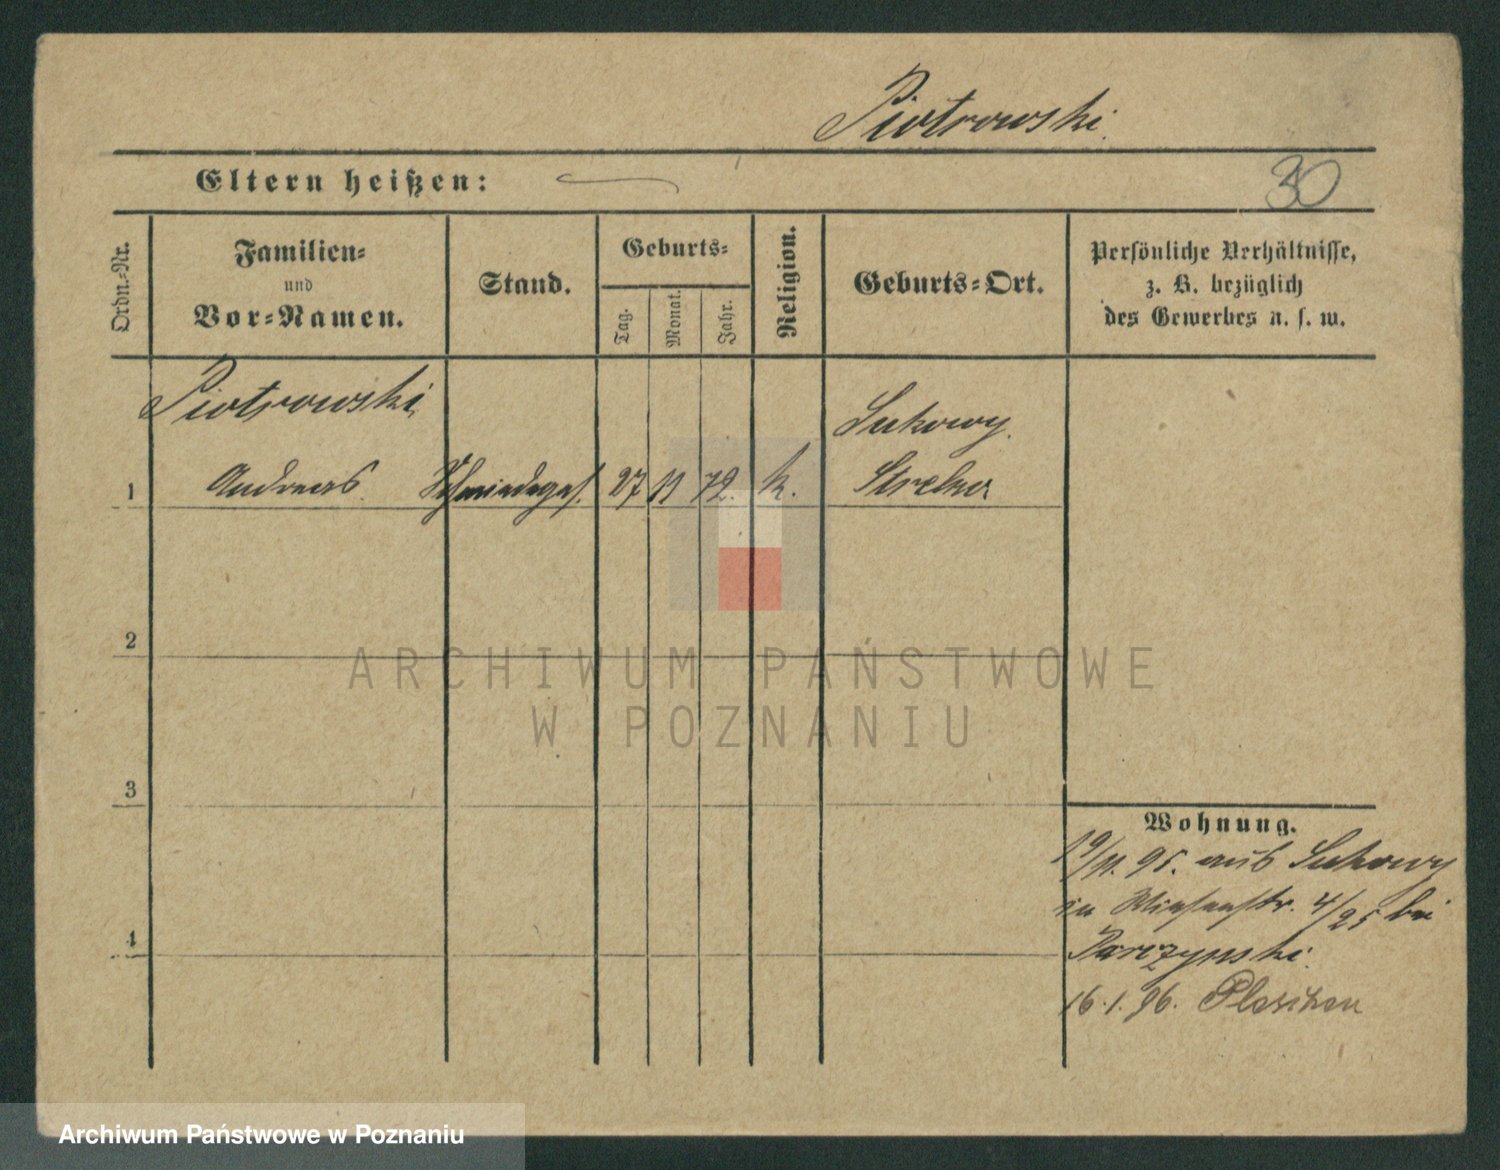 Piotrowski.
Eltern heißen:
30
Ordn.-Nr.
Familien-
und
Vor-Namen.
Stand.
Geburts-
Tag.
Monat.
Jahr.
Religion.
Geburts-Ort.
Persönliche Verhältnisse,
z. B. bezüglich
des Gewerbes u. s. w.
Piotrowski,
1 Andreas. Schmiedeges. 27 11 72. k. Sukowy.
Strelno
2
3
4
Wohnung.
19/11. 95. aus Sukowy
in 4/25 bei
Parczynski.
16.1.96. Pleschen
ARCHIWUM PAŃSTWOWE
W POZNANIU
Archiwum Państwowe w Poznaniu